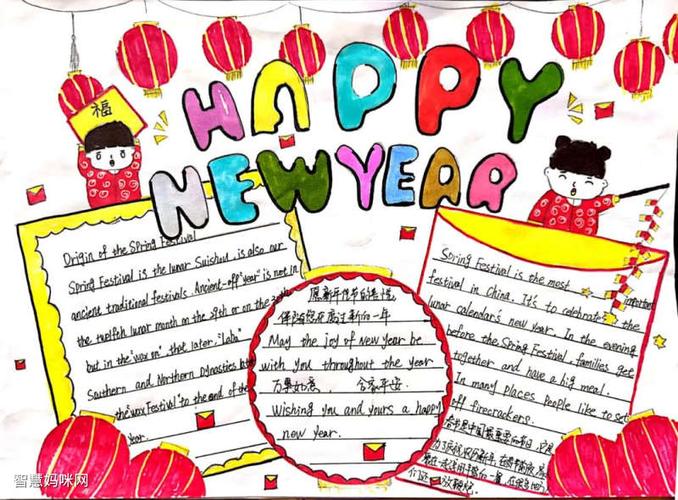 HAPPY
NEW YEAR
福
Origin of the Spring Festival
Spring Festival is the lunar Suishou, is also our
ancient traditional festivals. Ancient-off "year" is not in
the twelfth lunar month on the 29th or on the 30th
but in the "wax on" that later "Laba"
Southern and Northern Dynasties
the "wax Festival" to the end of the
year.
愿新年佳节的喜悦
伴随您在度过新的一年
May the joy of New Year be
with you throughout the year
万事如意 合家平安.
Wishing you and yours a happy
new year.
Spring Festival is the most important
festival in China. It's to celebrate the
lunar calendar's new year. In the evening
before the Spring Festival, families get
together and have a big meal.
in many places people like to set
off firecrackers.
春节是中国最重要的节日
智慧妈咪网